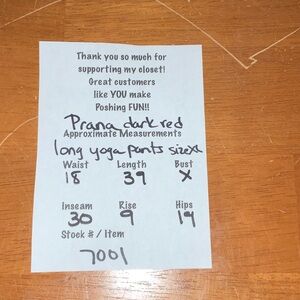 Thank you so much for
supporting my closet!
Great customers
like YOU make
Poshing FUN!!
Prana dark red
Approximate Measurements
long yoga pants size XL
Waist Length Bust
18 39 X
Inseam Rise Hips
30 9 19
Stock # / Item
7001